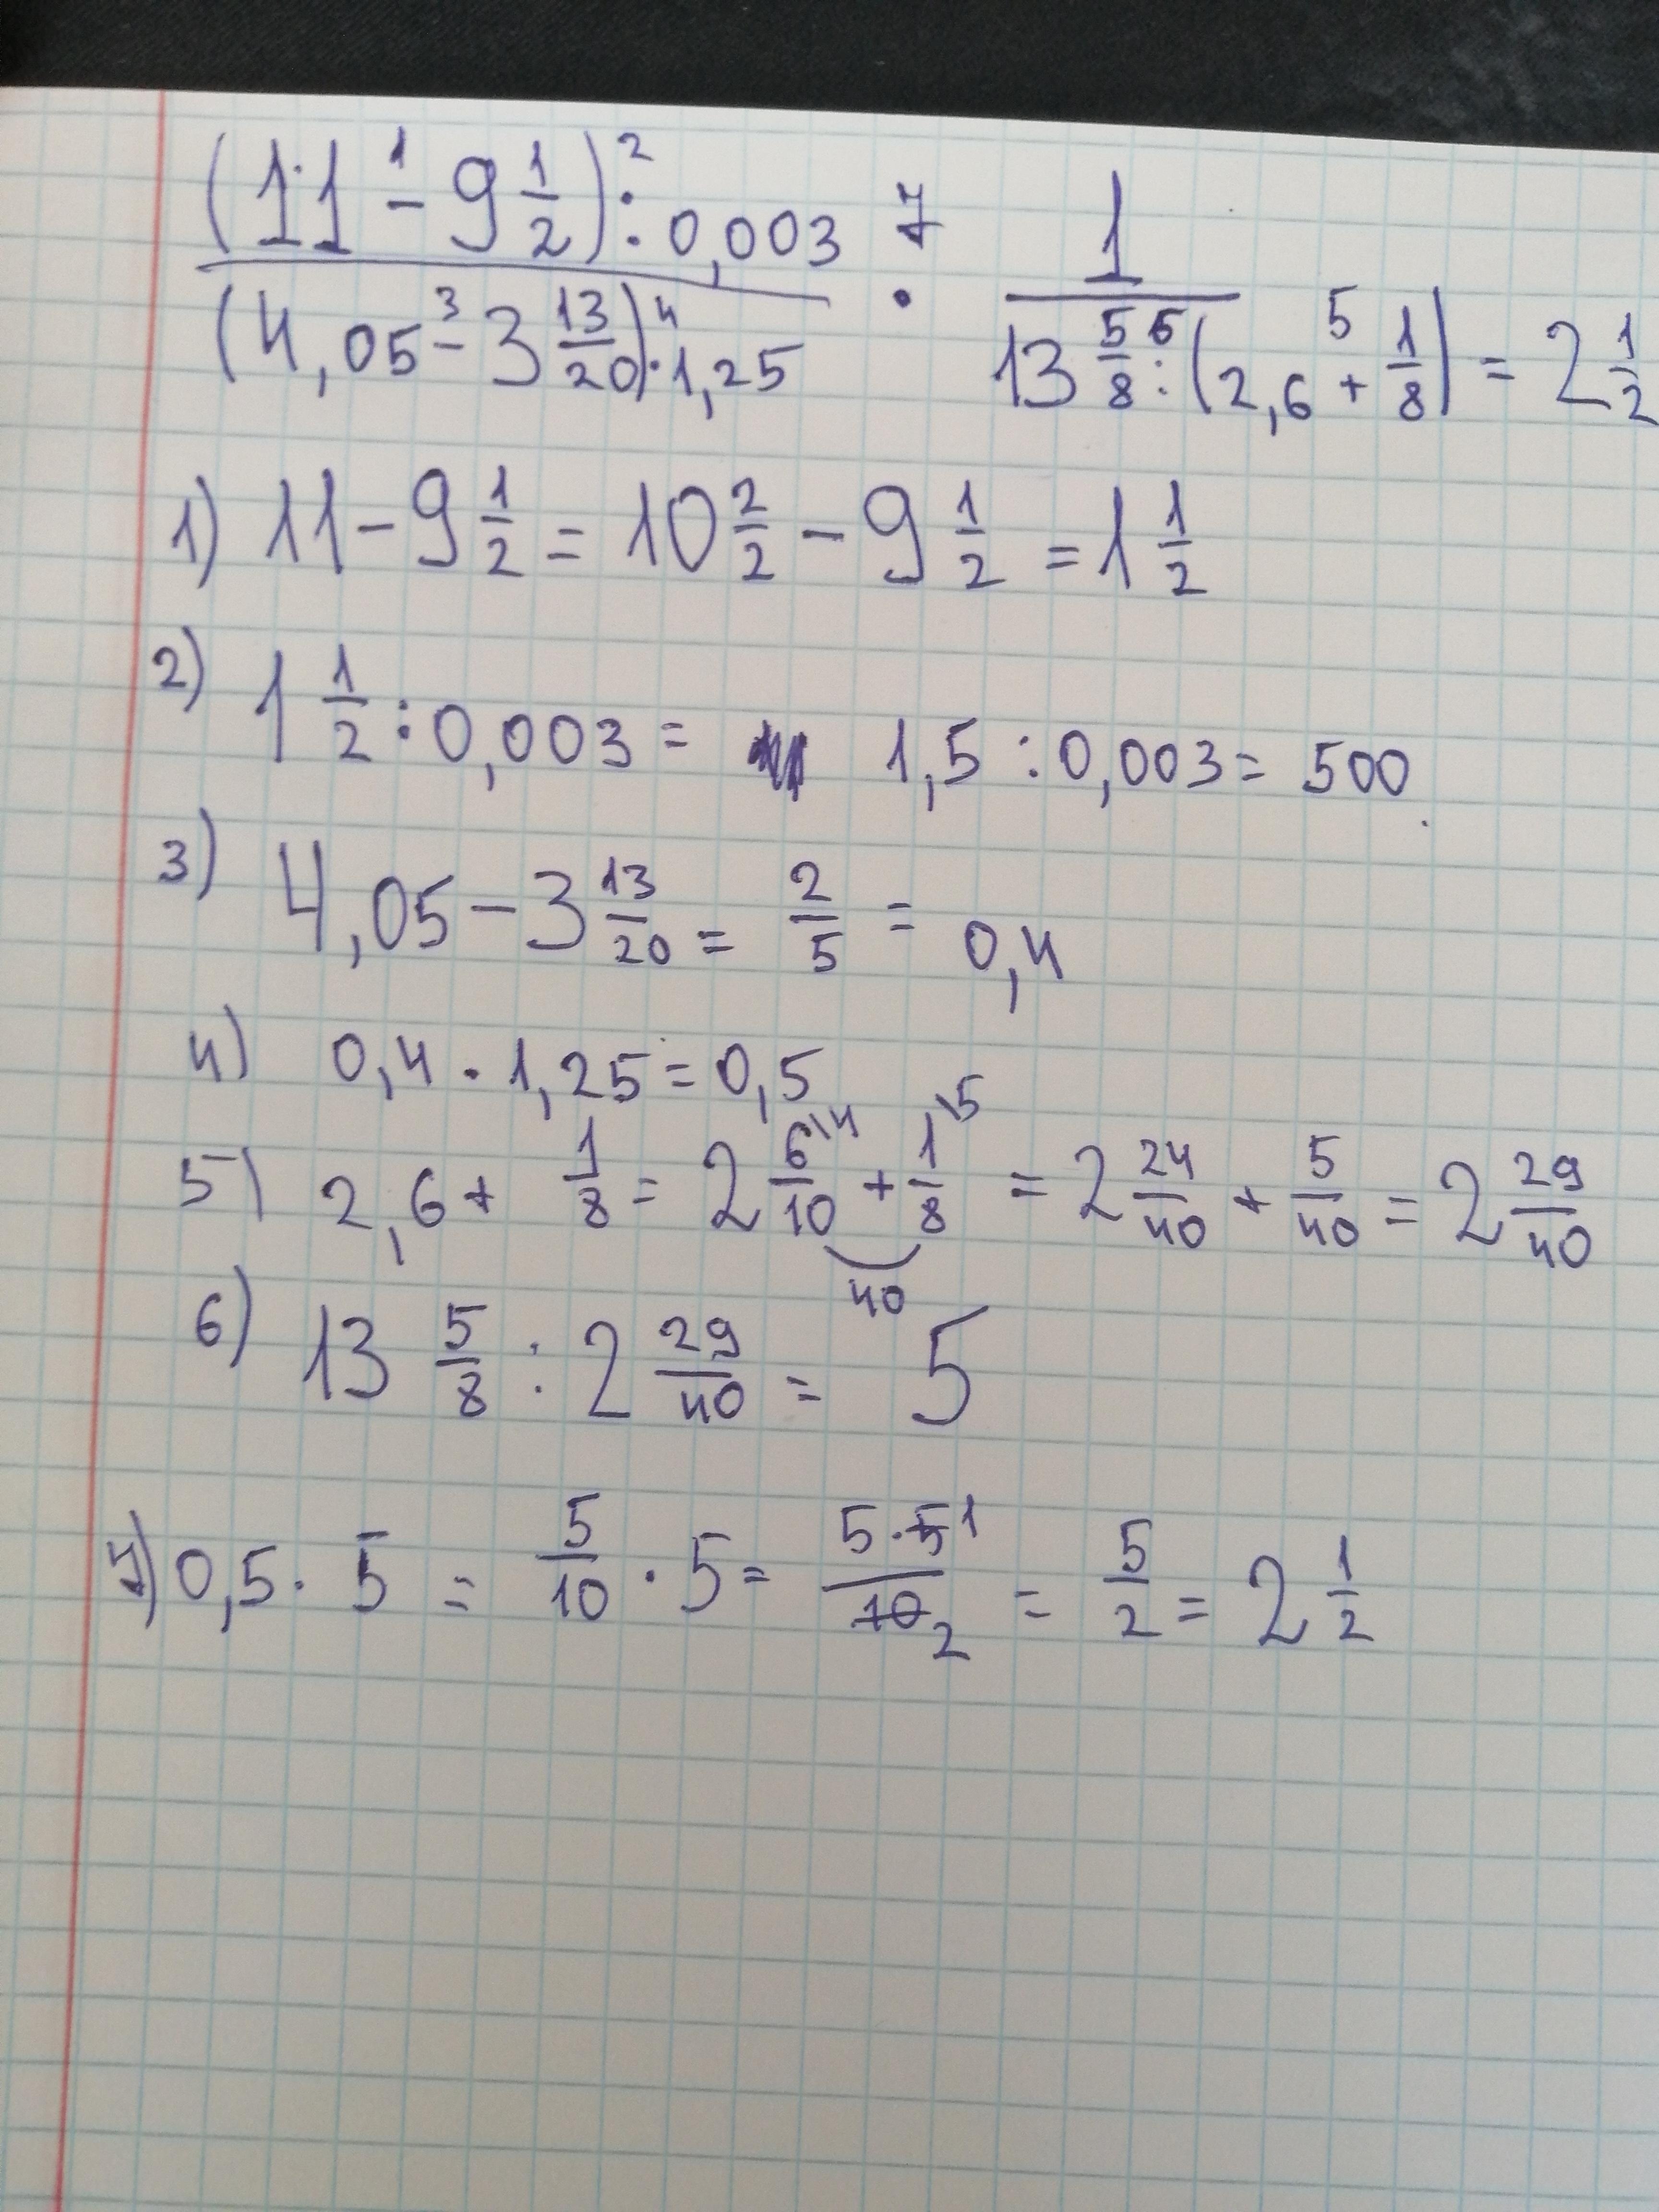 (11 - 9 1/2)¹ ² : 0,003 7 1
(4,05 - 3 13/20)³ ⁴ · 1,25 · 13 5/8 : ⁶ (2,6 + ⁵ 1/8) = 2 1/2
1) 11 - 9 1/2 = 10 2/2 - 9 1/2 = 1 1/2
2) 1 1/2 : 0,003 = 1,5 : 0,003 = 500
3) 4,05 - 3 13/20 = 2/5 = 0,4
4) 0,4 · 1,25 = 0,5
5) 2,6 + 1/8 = 2 6\4/10 + 1\5/8 = 2 24/40 + 5/40 = 2 29/40
40
6) 13 5/8 : 2 29/40 = 5
7) 0,5 · 5 = 5/10 · 5 = 5·5 1/10 2 = 5/2 = 2 1/2